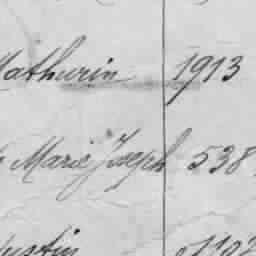 Mathurin 1913
Marie Joseph 538